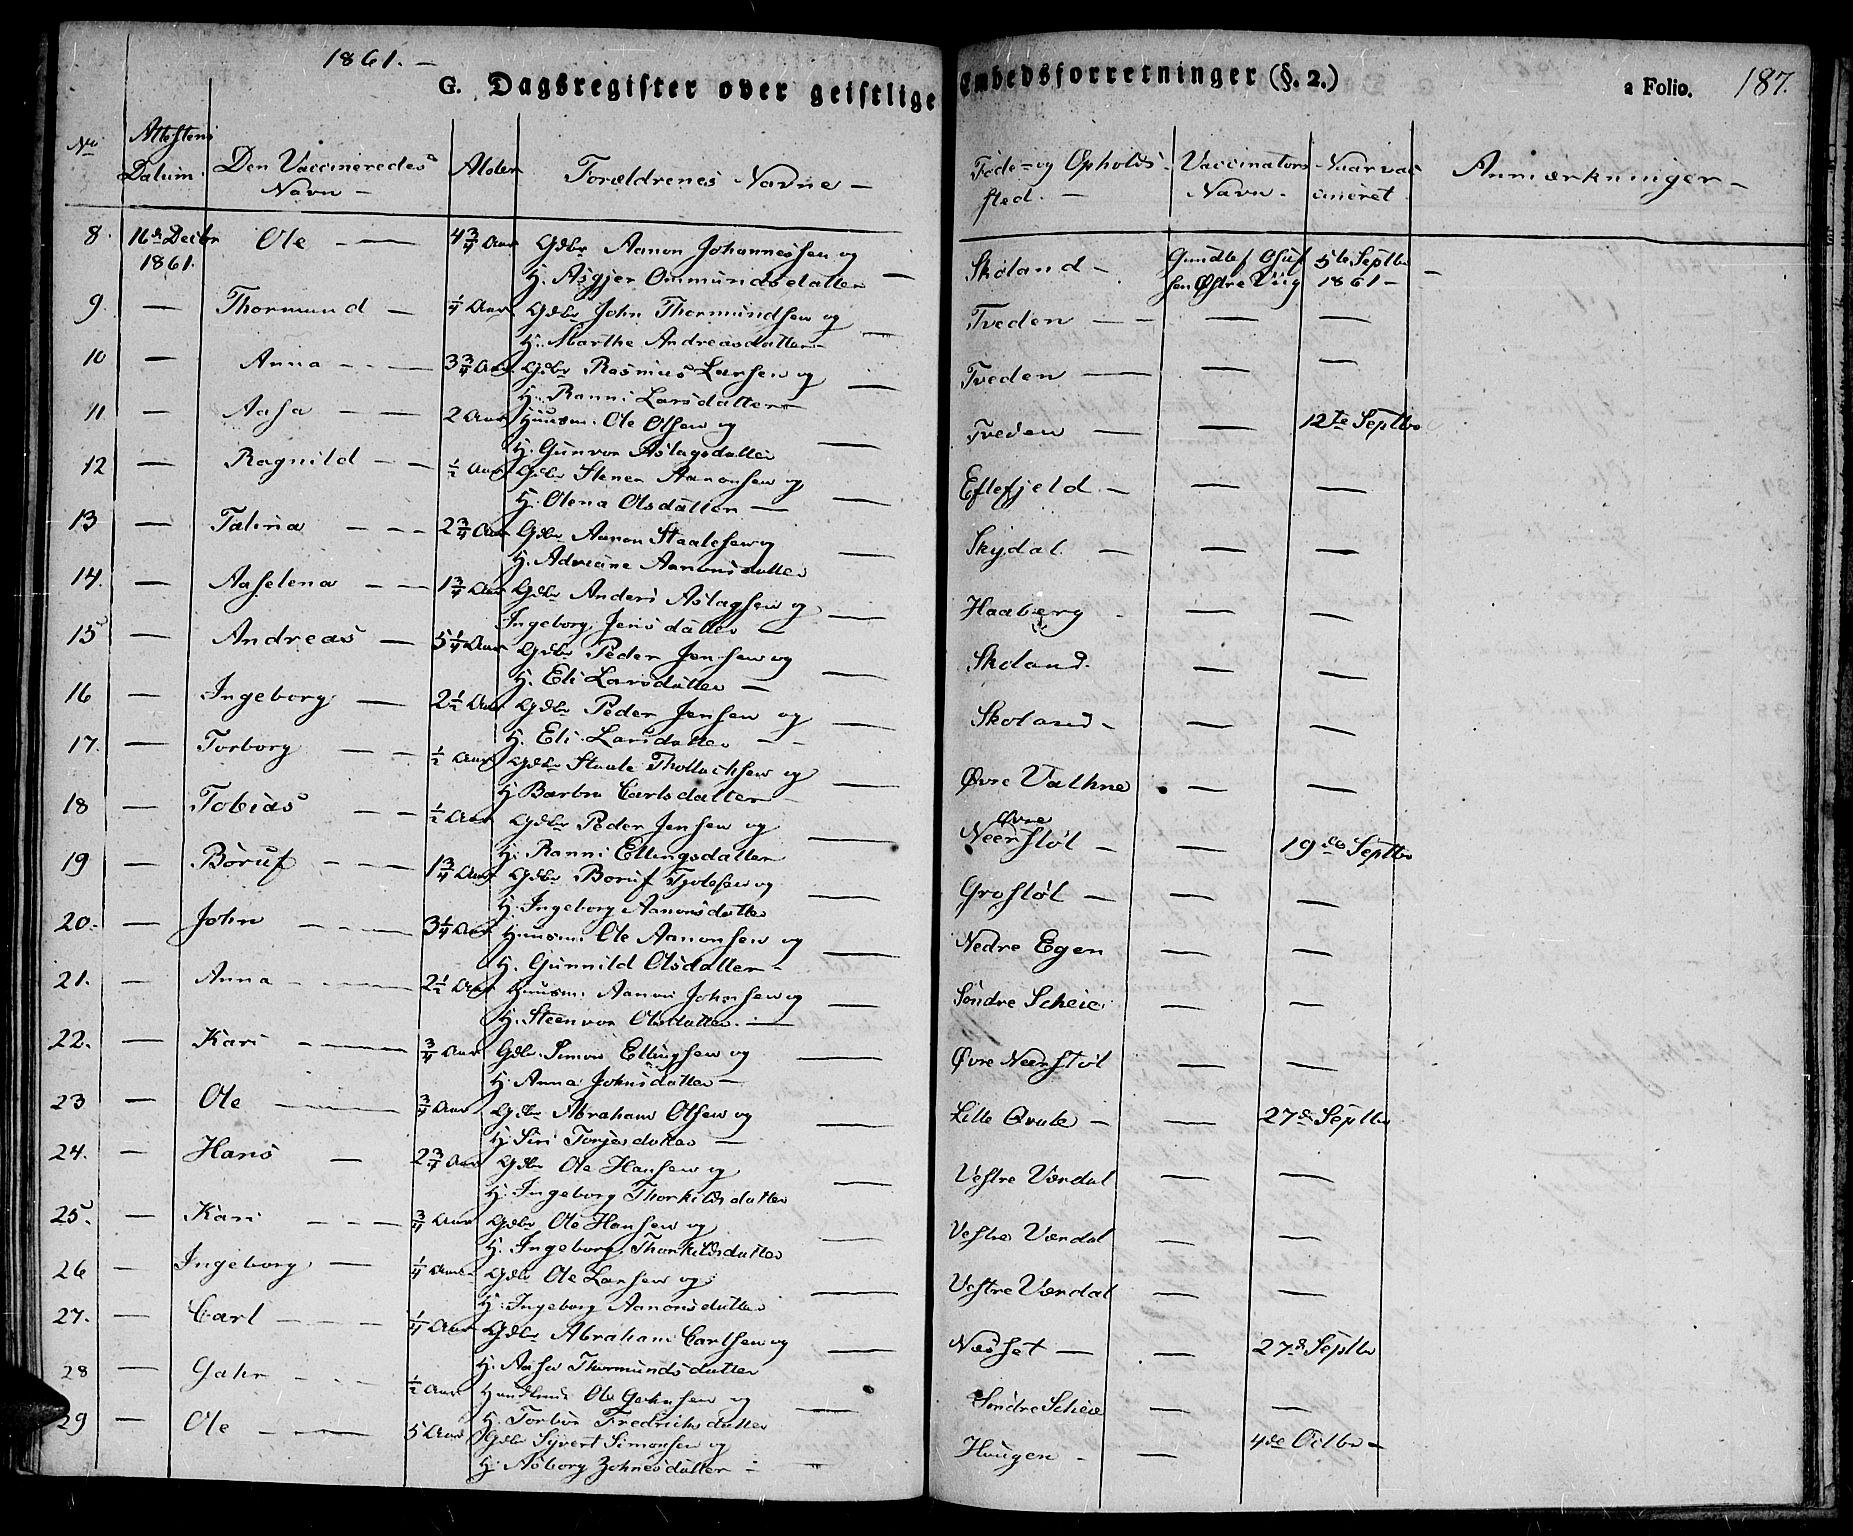 1861. –
G. Dagsregister over geistlige Embedsforretninger (§. 2.) a Folio. 187.
No Attestens Datum. Den Vaccineredes Navn – Alder Forældrenes Navne – Føde- og Opholds sted. – Vaccinators Navn – Naar vac cineret Anmærkninger –
8. 16de Decbr Ole – — 4 3/4 Aar Gdbr Aanon Johannessen og Skoland – Gundlef Osuf 5te Septbr –
1861. H. Asgjer Ommundsdatter — sen Østre Vig 1861 –
9. — Thormund — 1/4 Aar Gdbr John Thormundsen og Tveden — — — —
H. Marthe Andreasdatter —
10 — Anna - - — 3 3/4 Aar Gdbr Rasmus Larsen og — Tveden — — —
H. Ranni Larsdatter
11. — Aasa — — 2 Aar Huusm. Ole Olsen og Tveden — — 12te Septbr
H. Gunvor Aslagsdatter —
12 — Ragnild – — 1/2 Aar Gdbr Stener Aanonsen og Eftefjeld. – — —
H. Olena Olsdatter — —
13 — Talina — - – 2 3/4 Aar Gdbr Aanon Staalesen og Skydal – — —
H. Adriane Aanonsdatter —
14. — Aaselena – — 1 3/4 Aar Gdbr Anders Aslagsen og Haaberg – — —
Ingeborg Jensdatter — —
15 — Andreas — 5 1/4 Aar Gdbr Peder Jensen og Skoland. — —
H. Eli Larsdatter — —
16 — Ingeborg — 2 1/2 Aar Gdbr Peder Jensen og Skoland – — —
H. Eli Larsdatter – – —
17. — Torborg — – 1/2 Aar Gdbr Staale Thollachsen og Øvre Valhne — —
H. Barbra Carlsdatter – —
18 — Tobias – – 1/2 Aar Gdbr Peder Jensen og Øvre Neerstøl – — 19de Septbr
H. Ranni Ellingsdatter —
19 — Børuf – - — 1 3/4 Aar Gdbr Børuf Tjølsen og Grostøl — — —
H. Ingeborg Aanonsdatter —
20. — John – - - — 3 1/4 Aar Huusm. Ole Aanonsen og Nedre Egen — —
H. Gunnild Olsdatter – —
21. — Anna – - - — 2 1/2 Aar Huusm. Aanon Johnsen og Søndre Scheie — —
H. Steenvor Olsdatter. — —
22. — Kari – - — 3/4 Aar Gdbr. Simon Ellingsen og Øvre Neerstøl — —
H. Anna Johnsdatter – —
23 — Ole - — 3/4 Aar Gdbr Abraham Olsen og Lille – — 27de Septbr
H. Siri Torjesdatter — —
24. — Hans — 2 3/4 Aar Gdbr Ole Hansen og Vestre Værdal — —
H. Ingeborg Thorkildsdatter —
25. — Kari – - — 3/4 Aar Gdbr Ole Hansen og Vestre Værdal — —
H. Ingeborg Thorkildsdatter —
26 — Ingeborg — 1/4 Aar Gdbr Ole Larsen og Vestre Værdal — —
H. Ingeborg Aanonsdatter —
27. — Carl – - – 1/4 Aar Gdbr Abraham Carlsen og Næsset — — 27de Septbr
H. Aasa Thormundsdatter —
28 — – - – 1/2 Aar Ole og Søndre Scheie — —
H. Torbor Fredriksdatter —
29 — Ole – - — 5 Aar Gdbr Syvert Simonsen og Haugen – — 4de Octbr –
H. Asborg Johnesdatter – —